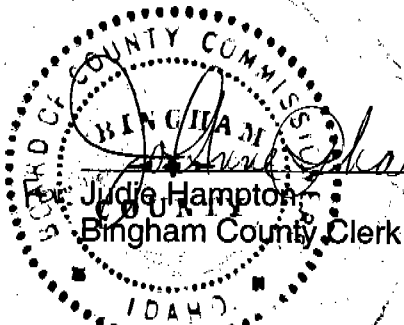 BOARD OF COUNTY COMMISSIONERS
BINGHAM
COUNTY
IDAHO
Judie Hampton
Bingham County Clerk